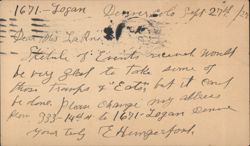 1671-Logan Denver Colo Sept 27th
Dear Mrs
Schedule of Events received would
be very glad to take some of
those Tramps & "Eats" but it cant
be done. Please change my address
from 933-14th to 1671-Logan Denver
Yours truly E Hungerford.